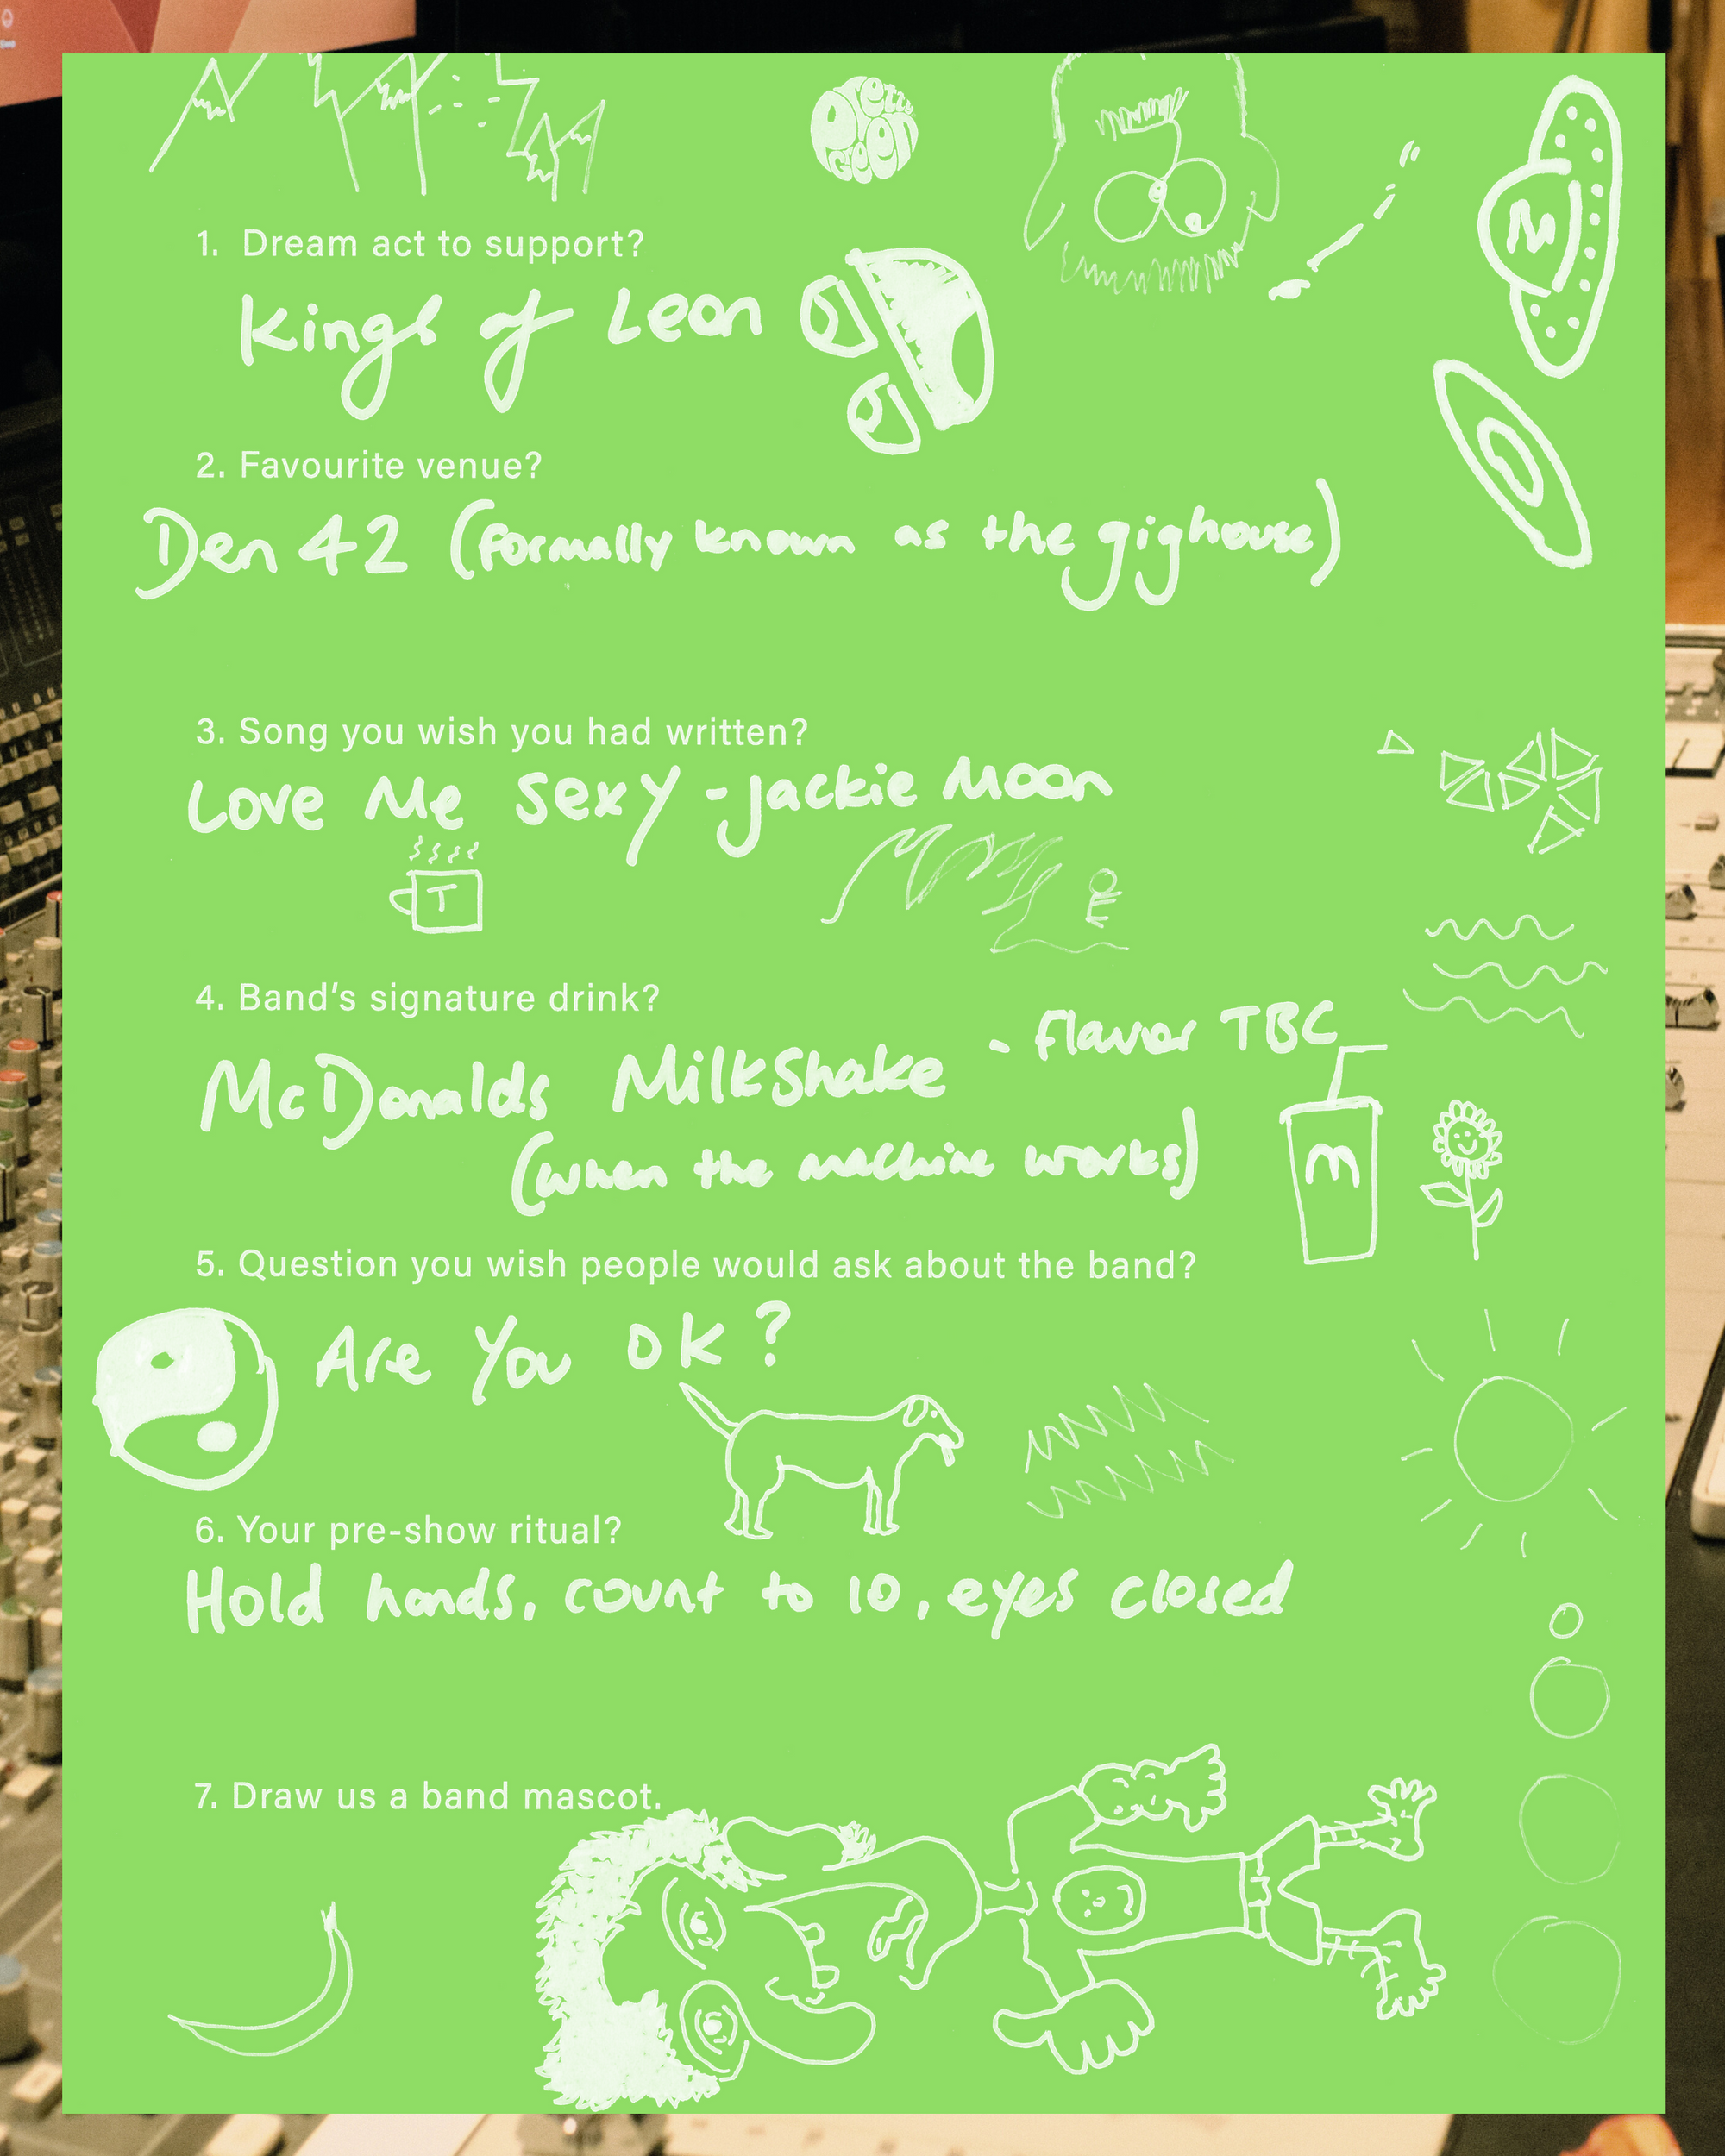 Pretty Green
1. Dream act to support?
Kings of Leon
M
2. Favourite venue?
Den 42 (formally known as the gighouse)
3. Song you wish you had written?
Love Me Sexy - Jackie Moon
T
4. Band's signature drink?
McDonalds MilkShake - flavor TBC
(when the machine works)
M
5. Question you wish people would ask about the band?
Are You OK?
6. Your pre-show ritual?
Hold hands, count to 10, eyes closed
7. Draw us a band mascot.